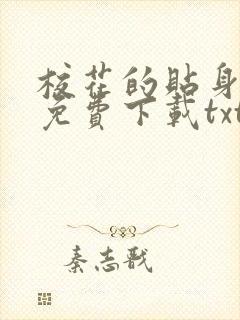 校花的贴身
免費下載txt
秦志戬